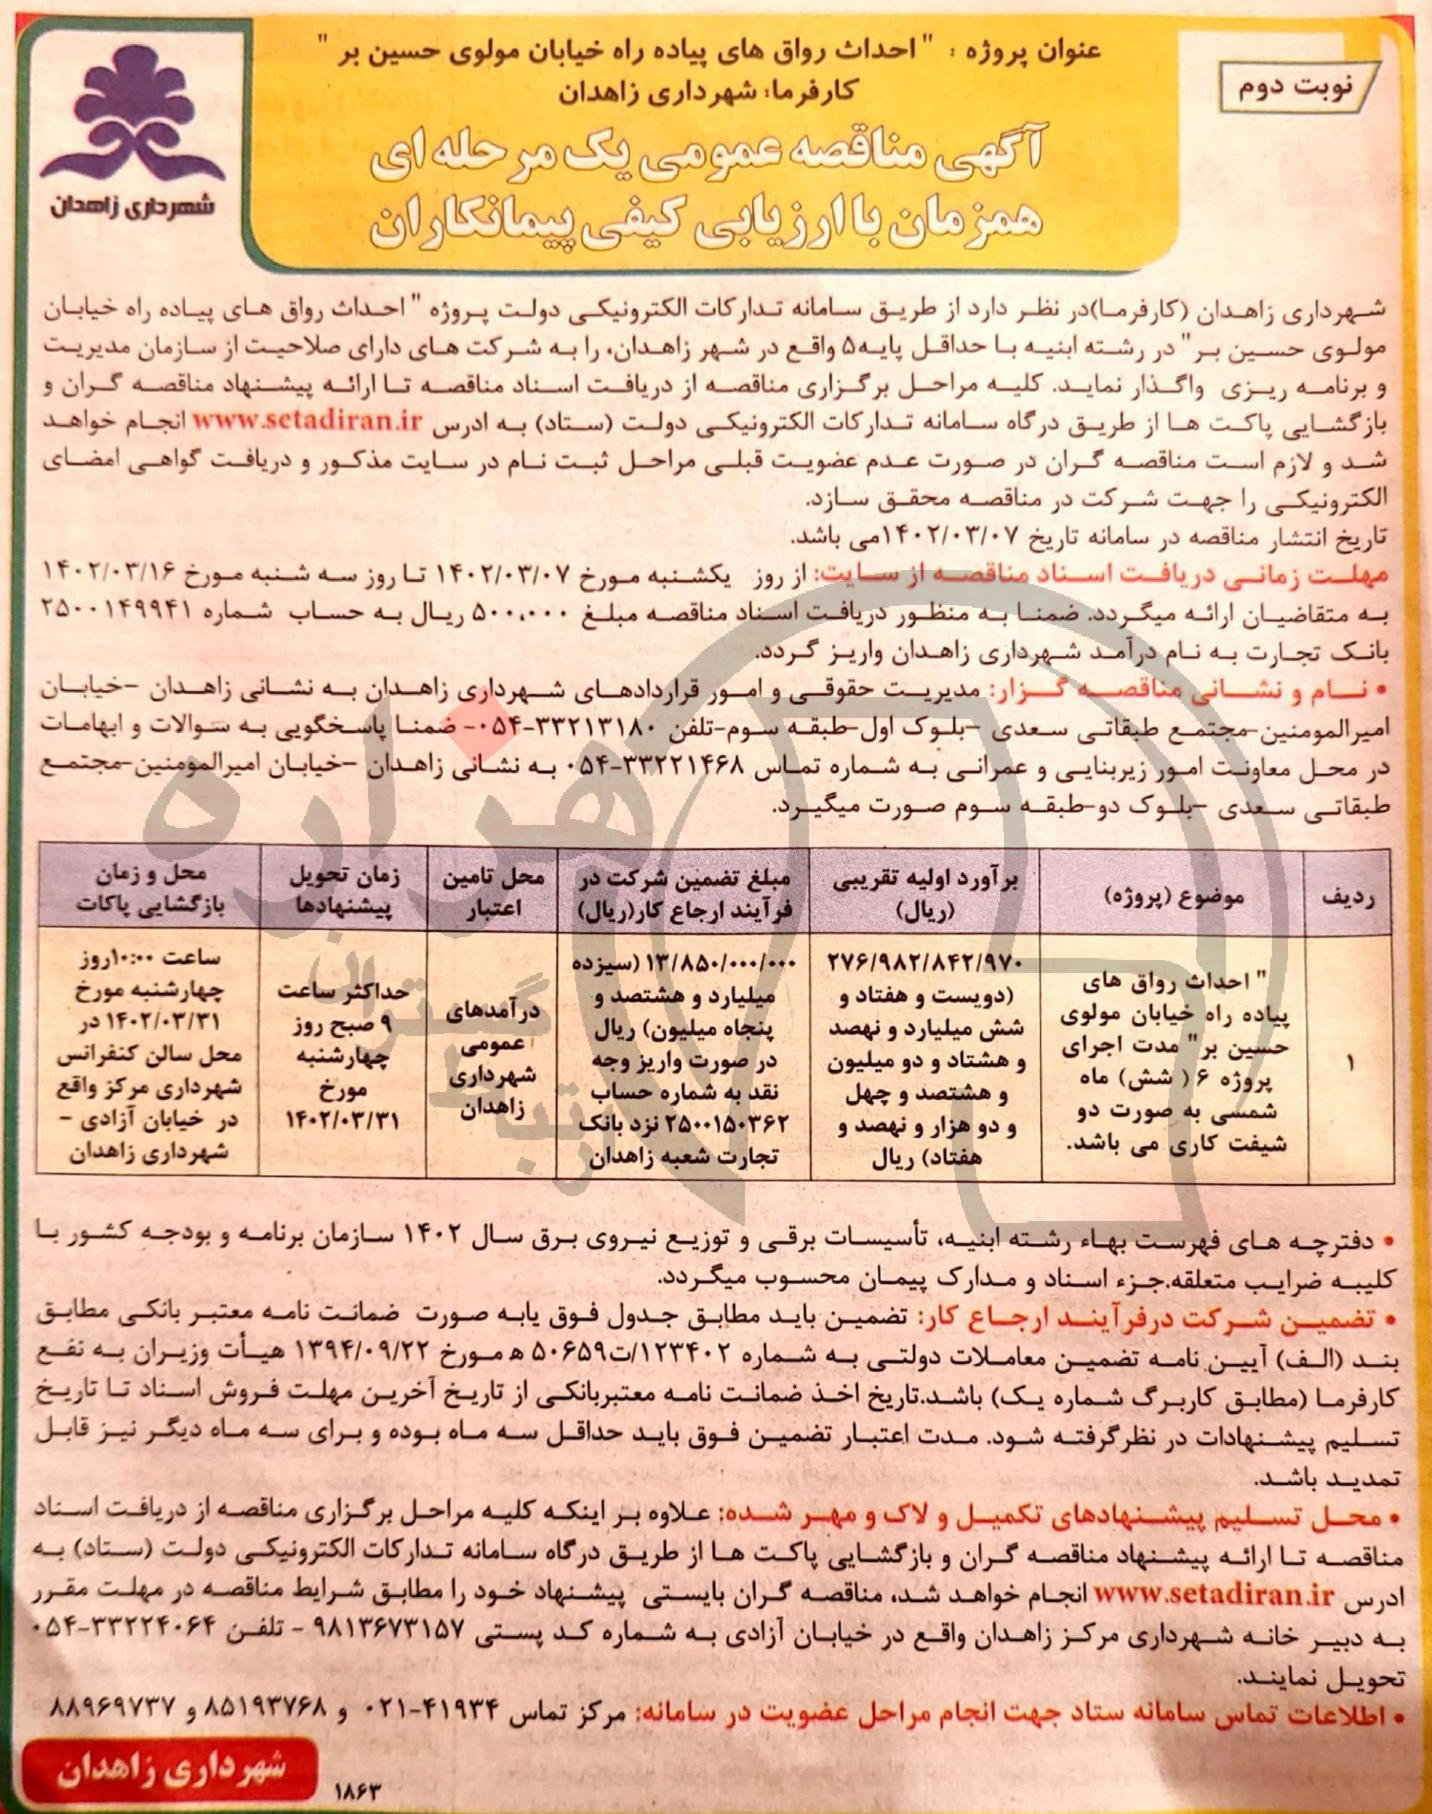 نوبت دوم
عنوان پروژه : " احداث رواق های پیاده راه خیابان مولوی حسین بر "
کارفرما: شهرداری زاهدان
آگهی مناقصه عمومی یک مرحله ای
همزمان با ارزیابی کیفی پیمانکاران
شهرداری زاهدان
شهرداری زاهدان (کارفرما)در نظر دارد از طریق سامانه تدارکات الکترونیکی دولت پروژه " احداث رواق های پیاده راه خیابان
مولوی حسین بر" در رشته ابنیه با حداقل پایه۵ واقع در شهر زاهدان، را به شرکت های دارای صلاحیت از سازمان مدیریت
و برنامه ریزی واگذار نماید. کلیه مراحل برگزاری مناقصه از دریافت اسناد مناقصه تا ارائه پیشنهاد مناقصه گران و
بازگشایی پاکت ها از طریق درگاه سامانه تدارکات الکترونیکی دولت (ستاد) به ادرس www.setadiran.ir انجام خواهد
شد و لازم است مناقصه گران در صورت عدم عضویت قبلی مراحل ثبت نام در سایت مذکور و دریافت گواهی امضای
الکترونیکی را جهت شرکت در مناقصه محقق سازد.
تاریخ انتشار مناقصه در سامانه تاریخ ۱۴۰۲/۰۳/۰۷می باشد.
مهلت زمانی دریافت اسناد مناقصه از سایت: از روز یکشنبه مورخ ۱۴۰۲/۰۳/۰۷ تا روز سه شنبه مورخ ۱۴۰۲/۰۳/۱۶
به متقاضیان ارائه میگردد. ضمنا به منظور دریافت اسناد مناقصه مبلغ ۵۰۰،۰۰۰ ریال به حساب شماره ۲۵۰۰۱۴۹۹۴۱
بانک تجارت به نام درآمد شهرداری زاهدان واریز گردد.
• نام و نشانی مناقصه گزار: مدیریت حقوقی و امور قراردادهای شهرداری زاهدان به نشانی زاهدان -خیابان
امیرالمومنین-مجتمع طبقاتی سعدی -بلوک اول-طبقه سوم-تلفن ۳۳۲۱۳۱۸۰-۰۵۴- ضمنا پاسخگویی به سوالات و ابهامات
در محل معاونت امور زیربنایی و عمرانی به شماره تماس ۳۳۲۲۱۴۶۸-۰۵۴ به نشانی زاهدان -خیابان امیرالمومنین-مجتمع
طبقاتی سعدی -بلوک دو-طبقه سوم صورت میگیرد.
ردیف
موضوع (پروژه)
برآورد اولیه تقریبی
(ریال)
مبلغ تضمین شرکت در
فرآیند ارجاع کار(ریال)
محل تامین
اعتبار
زمان تحویل
پیشنهادها
محل و زمان
بازگشایی پاکات
۱
" احداث رواق های
پیاده راه خیابان مولوی
حسین بر" مدت اجرای
پروژه ۶ ( شش) ماه
شمسی به صورت دو
شیفت کاری می باشد.
۲۷۶/۹۸۲/۸۴۲/۹۷۰
(دویست و هفتاد و
شش میلیارد و نهصد
و هشتاد و دو میلیون
و هشتصد و چهل
و دو هزار و نهصد و
هفتاد) ریال
۱۳/۸۵۰/۰۰۰/۰۰۰ (سیزده
میلیارد و هشتصد و
پنجاه میلیون) ریال
در صورت واریز وجه
نقد به شماره حساب
۲۵۰۰۱۵۰۳۶۲ نزد بانک
تجارت شعبه زاهدان
درآمدهای
عمومی
شهرداری
زاهدان
حداکثر ساعت
۹ صبح روز
چهارشنبه
مورخ
۱۴۰۲/۰۳/۳۱
ساعت ۱۰:۰۰روز
چهارشنبه مورخ
۱۴۰۲/۰۳/۳۱ در
محل سالن کنفرانس
شهرداری مرکز واقع
در خیابان آزادی -
شهرداری زاهدان
• دفترچه های فهرست بهاء رشته ابنیه، تأسیسات برقی و توزیع نیروی برق سال ۱۴۰۲ سازمان برنامه و بودجه کشور با
کلیه ضرایب متعلقه.جزء اسناد و مدارک پیمان محسوب میگردد.
• تضمین شرکت درفرآیند ارجاع کار: تضمین باید مطابق جدول فوق یابه صورت ضمانت نامه معتبر بانکی مطابق
بند (الف) آیین نامه تضمین معاملات دولتی به شماره ۱۲۳۴۰۲/ت۵۰۶۵۹ ه مورخ ۱۳۹۴/۰۹/۲۲ هیأت وزیران به نفع
کارفرما (مطابق کاربرگ شماره یک) باشد.تاریخ اخذ ضمانت نامه معتبربانکی از تاریخ آخرین مهلت فروش اسناد تا تاریخ
تسلیم پیشنهادات در نظرگرفته شود. مدت اعتبار تضمین فوق باید حداقل سه ماه بوده و برای سه ماه دیگر نیز قابل
تمدید باشد.
• محل تسلیم پیشنهادهای تکمیل و لاک و مهر شده: علاوه بر اینکه کلیه مراحل برگزاری مناقصه از دریافت اسناد
مناقصه تا ارائه پیشنهاد مناقصه گران و بازگشایی پاکت ها از طریق درگاه سامانه تدارکات الکترونیکی دولت (ستاد) به
ادرس www.setadiran.ir انجام خواهد شد، مناقصه گران بایستی پیشنهاد خود را مطابق شرایط مناقصه در مهلت مقرر
به دبیر خانه شهرداری مرکز زاهدان واقع در خیابان آزادی به شماره کد پستی ۹۸۱۳۶۷۳۱۵۷ - تلفن ۳۳۲۲۴۰۶۴-۰۵۴
تحویل نمایند.
• اطلاعات تماس سامانه ستاد جهت انجام مراحل عضویت در سامانه: مرکز تماس ۴۱۹۳۴-۰۲۱ و ۸۵۱۹۳۷۶۸ و ۸۸۹۶۹۷۳۷
شهرداری زاهدان
۱۸۶۳
هزاره